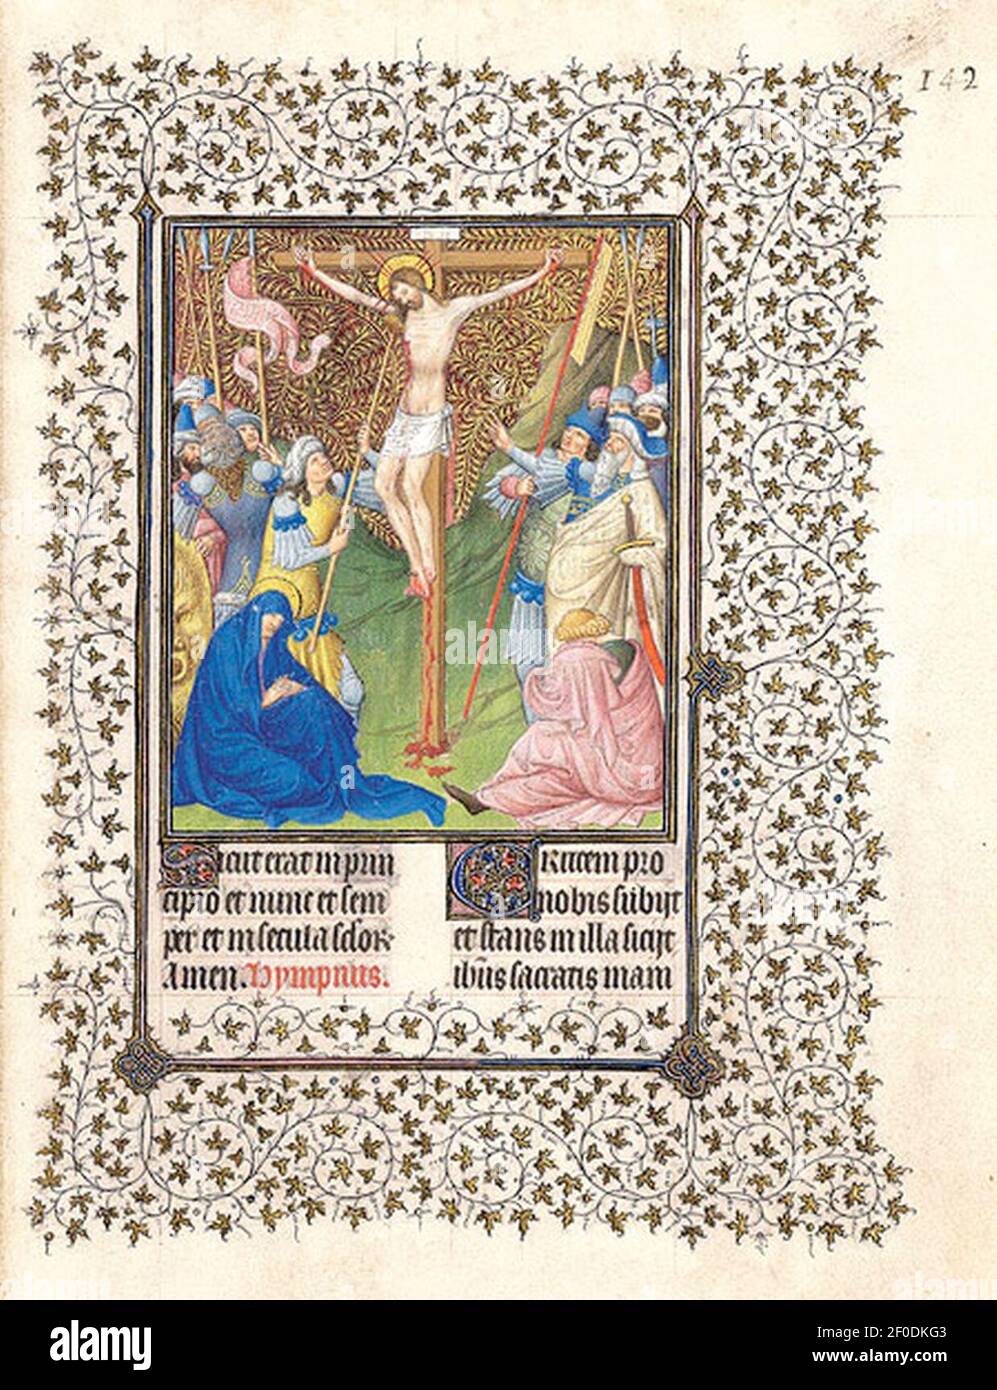 142
Sicut erat in prin
cipio et nunc et sem
per et in secula sclor
Amen. Hympnus.
Crucem pro
nobis subijt
et stans in illa sicijt
ihus sacratis mani
alamy
Image ID: 2F0DKG3
www.alamy.com